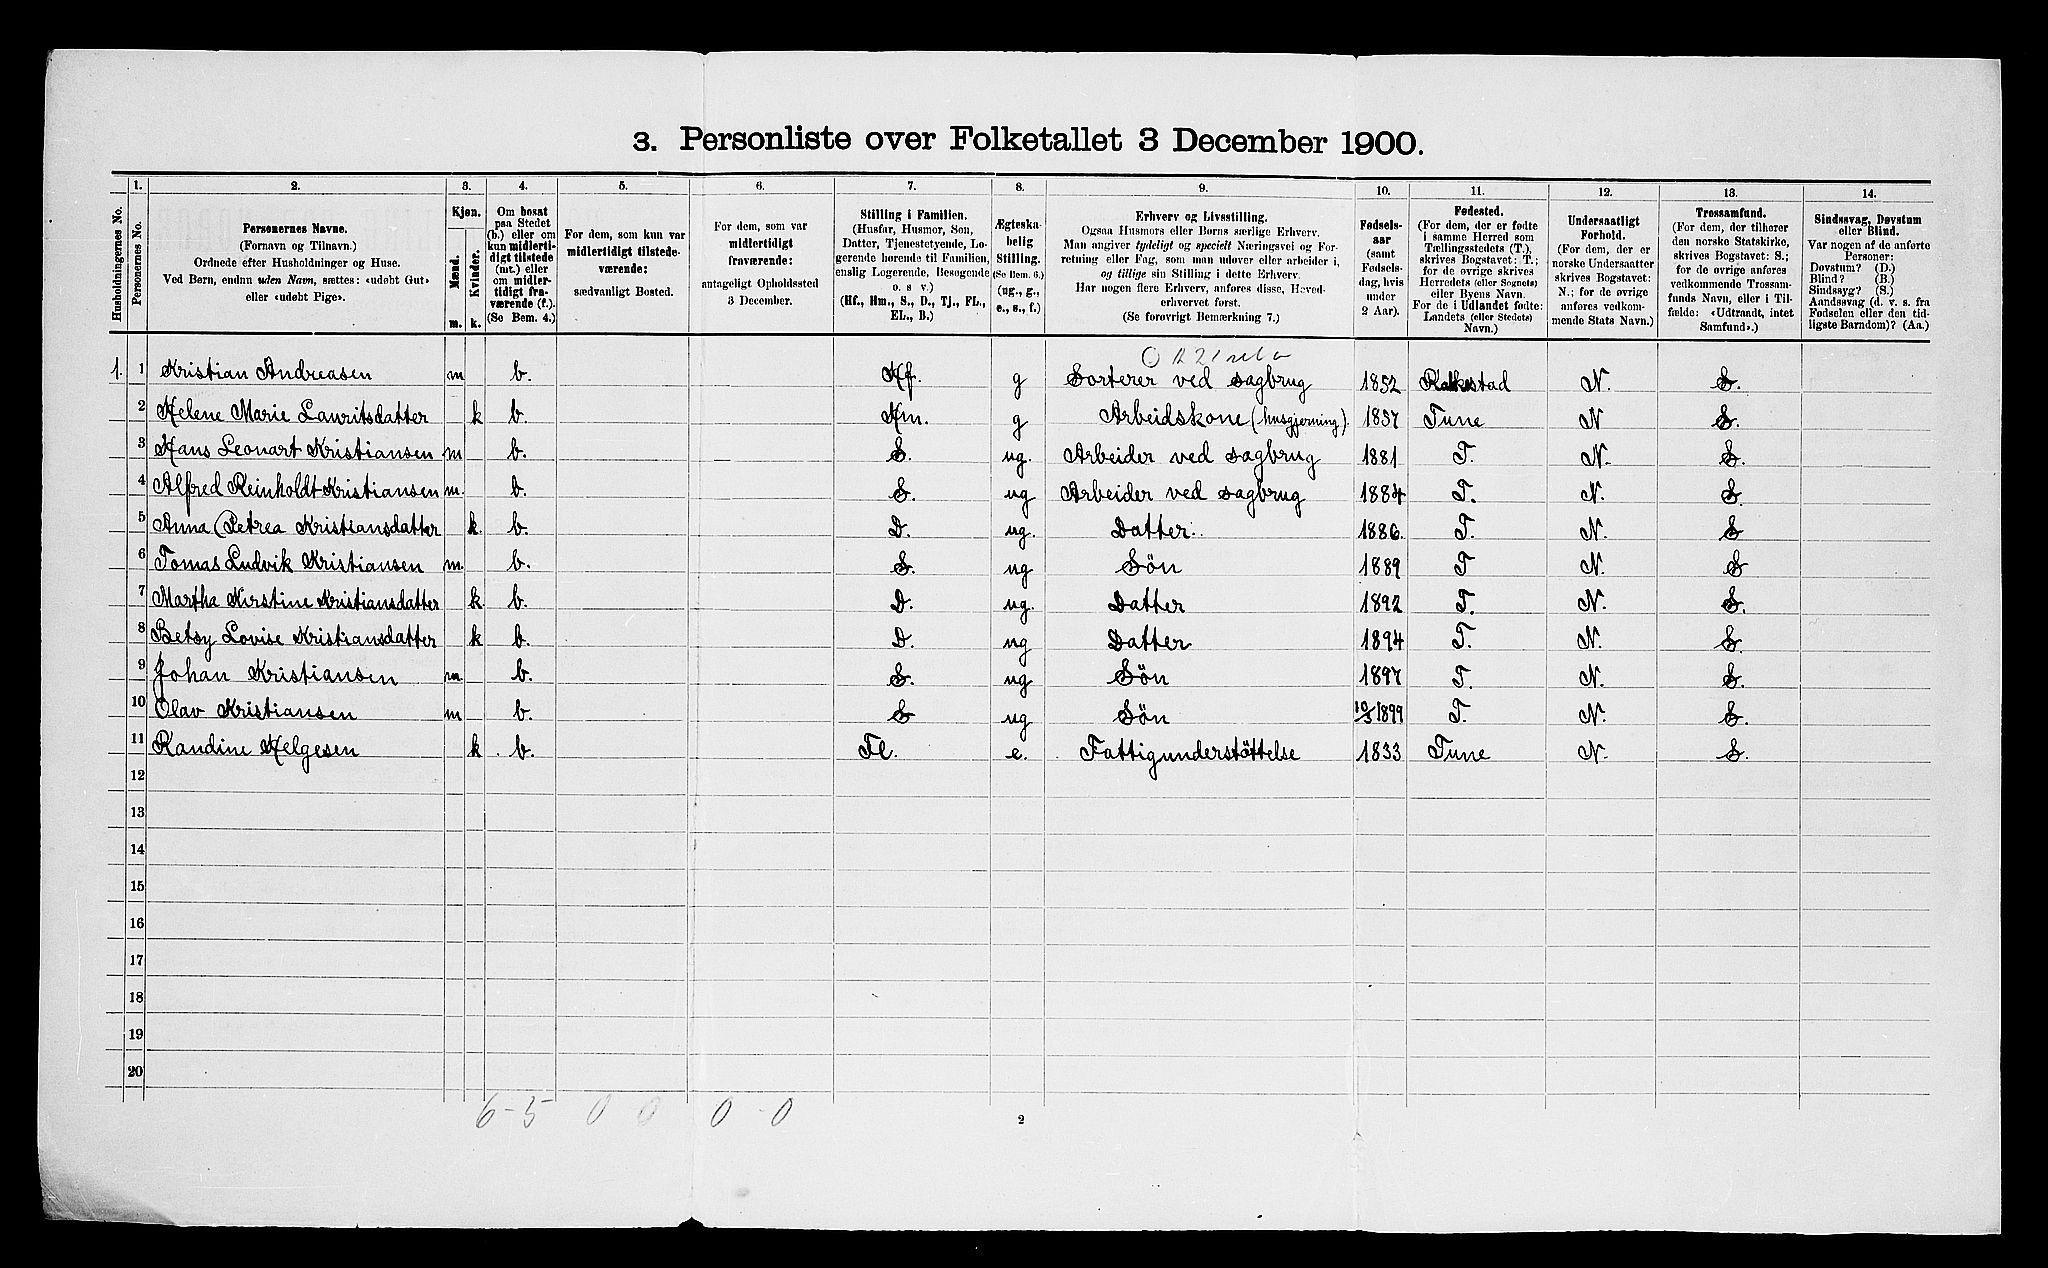 3. Personliste over Folketallet 3 December 1900.
Husholdningernes No.
1.
Personernes No.
2.
Personernes Navne.
(Fornavn og Tilnavn.)
Ordnede efter Husholdninger og Huse.
Ved Børn, endnu uden Navn, sættes: «udøbt Gut»
eller «udøbt Pige».
3.
Kjøn.
Mænd.
Kvinder.
m. k.
4.
Om bosat
paa Stedet
(b.) eller om
kun midlerti-
digt tilstede
(mt.) eller
om midler-
tidigt fra-
værende (f.).
(Se Bem. 4.)
5.
For dem, som kun var
midlertidigt tilstede-
værende:
sædvanligt Bosted.
6.
For dem, som var
midlertidigt
fraværende:
antageligt Opholdssted
3 December.
7.
Stilling i Familien.
(Husfar, Husmor, Søn,
Datter, Tjenestetyende, Lo-
gerende hørende til Familien,
enslig Logerende, Besøgende
o. s. v.)
(Hf., Hm., S., D., Tj., FL.,
EL., B.)
8.
Ægteska-
belig
Stilling.
(Se Bem. 6.)
(ug., g.,
e., s., f.)
9.
Erhverv og Livsstilling.
Ogsaa Husmors eller Børns særlige Erhverv.
Man angiver tydeligt og specielt Næringsvei og For-
retning eller Fag, som man udøver eller arbeider i,
og tillige sin Stilling i dette Erhverv.
Har nogen flere Erhverv, anføres disse, Hoved-
erhvervet først.
(Se forøvrigt Bemærkning 7.)
10.
Fødsels-
aar
(samt
Fødsels-
dag, hvis
under
2 Aar).
11.
Fødested.
(For dem, der er fødte
i samme Herred som
Tællingsstedets (T.),
skrives Bogstavet: T.;
for de øvrige skrives
Herredets (eller Sognets)
eller Byens Navn.
For de i Udlandet fødte:
Landets (eller Stedets)
Navn.)
12.
Undersaatligt
Forhold.
(For dem, der er
norske Undersaatter
skrives Bogstavet:
N.; for de øvrige
anføres vedkom-
mende Stats Navn.)
13.
Trossamfund.
(For dem, der tilhører
den norske Statskirke,
skrives Bogstavet: S.;
for de øvrige anføres
vedkommende Trossam-
funds Navn, eller i Til-
fælde: «Udtraadt, intet
Samfund».)
14.
Sindssvag, Døvstum
eller Blind.
Var nogen af de anførte
Personer:
Døvstum? (D.)
Blind? (B.)
Sindssyg? (S.)
Aandssvag (d. v. s. fra
Fødselen eller den tid-
ligste Barndom)? (Aa.)
1. 1 Kristian Andreasen m b. Hf. g Sorterer ved sagbrug 1852 Rakkestad N. S.
2 Helene Marie Lauritsdatter k b. Hm. g Arbeidskone (husgjerning). 1857 Tune N S.
3 Hans Leonart Kristiansen m b. S. ug. Arbeider ved sagbrug 1881 T. N. S.
4 Alfred Reinholdt Kristiansen m. b. S. ug Arbeider ved sagbrug 1884 T. N. S.
5 Anna Petrea Kristiansdatter k. b. D. ug. Datter. 1886. T. N. S
6 Tomas Ludvik Kristiansen m. b. S. ug Søn 1889 T N. S
7 Martha Kirstine Kristiansdatter k b. D. ug. Datter 1892 T. N. S.
8 Betsy Lovise Kristiansdatter k b. D. ug Datter 1894 T. N. S.
9 Johan Kristiansen m. b. S. ug Søn 1897 T. N. S.
10 Olav Kristiansen m b. S ug Søn 10/5 1899 T. N. S.
11 Randine Helgesen k. b. Fl. e. Fattigunderstöttelse 1833 Tune N. S.
12
13
14
15
16
17
18
19
20
6-5 0 0 0-0
2